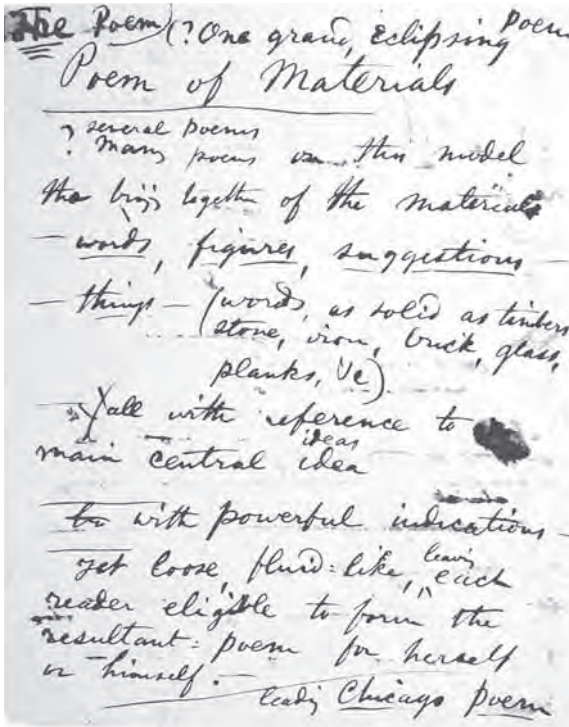 The Poem (? One grand, eclipsing Poem
Poem of Materials
? several poems
? many poems on this model
the bring'g together of the materials
— words, figures, suggestions —
— things — (words, as solid as timbers
stone, iron, brick, glass,
planks, &c)
all with reference to
ideas
main central idea
with powerful indications —
yet loose, fluid-like, leaving each
reader eligible to form the
resultant-poem for herself
or himself. —
leading Chicago Poem